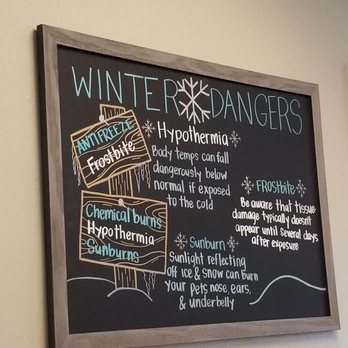 WINTER DANGERS
ANTIFREEZE
Frostbite
Chemical burns
Hypothermia
Sunburns
Hypothermia
Body temps can fall
dangerously below
normal if exposed
to the cold
FROSTBITE
Be aware that tissue
damage typically doesn't
appear until several days
after exposure
Sunburn
Sunlight reflecting
off ice & snow can burn
your pets nose, ears,
& underbelly